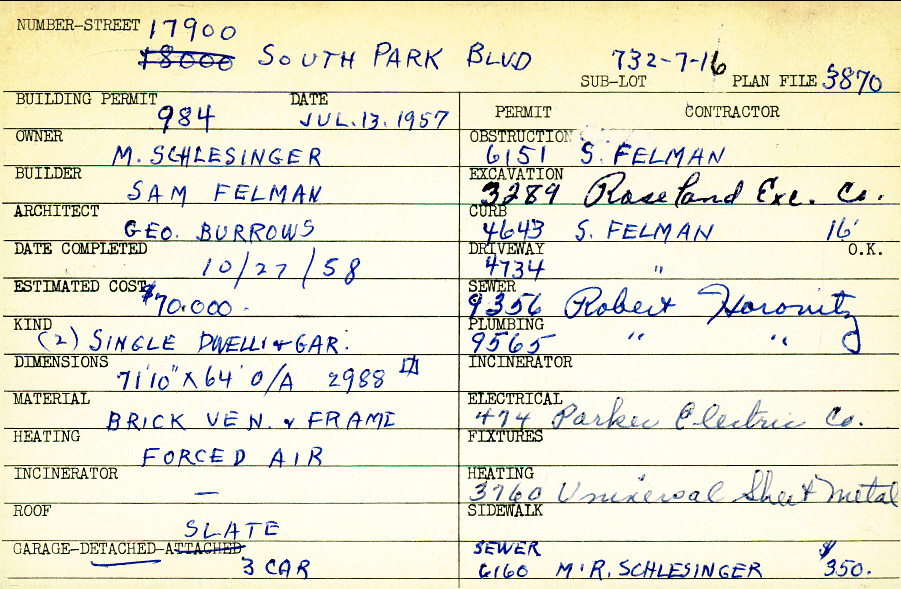 NUMBER-STREET 17900
18000 SOUTH PARK BLVD 732-7-16
SUB-LOT PLAN FILE 3870
BUILDING PERMIT 984 DATE JUL. 13. 1957
PERMIT CONTRACTOR
OWNER M. SCHLESINGER
OBSTRUCTION 6151 S. FELMAN
BUILDER SAM FELMAN
EXCAVATION 3289 Roseland Exc. Co.
ARCHITECT GEO. BURROWS
CURB 4643 S. FELMAN 16'
DATE COMPLETED 10/27/58
DRIVEWAY 4734 " O.K.
ESTIMATED COST $70.000.
SEWER 9356 Robert Horowitz
KIND (2) SINGLE DWELLI & GAR.
PLUMBING 9565 " "
DIMENSIONS 71'10" X 64' O/A 2988
INCINERATOR
MATERIAL BRICK VEN. & FRAME
ELECTRICAL 474 Parker Electric Co.
HEATING FORCED AIR
FIXTURES
INCINERATOR —
HEATING 3760 Universal Sheet Metal
ROOF SLATE
SIDEWALK
GARAGE-DETACHED-ATTACHED 3 CAR
SEWER 6160 M. R. SCHLESINGER $350.